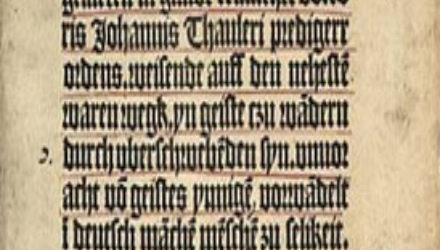 ris Johannis Thauleri predigerr
ordens. weisende auff den nehestē
waren wegk. yn geiste czu wādern
durch vberschwebēden syn. vnuor
acht vō geistes ynnigē. vorwādelt
ī deutsch māchē mēschē zu selikeit.